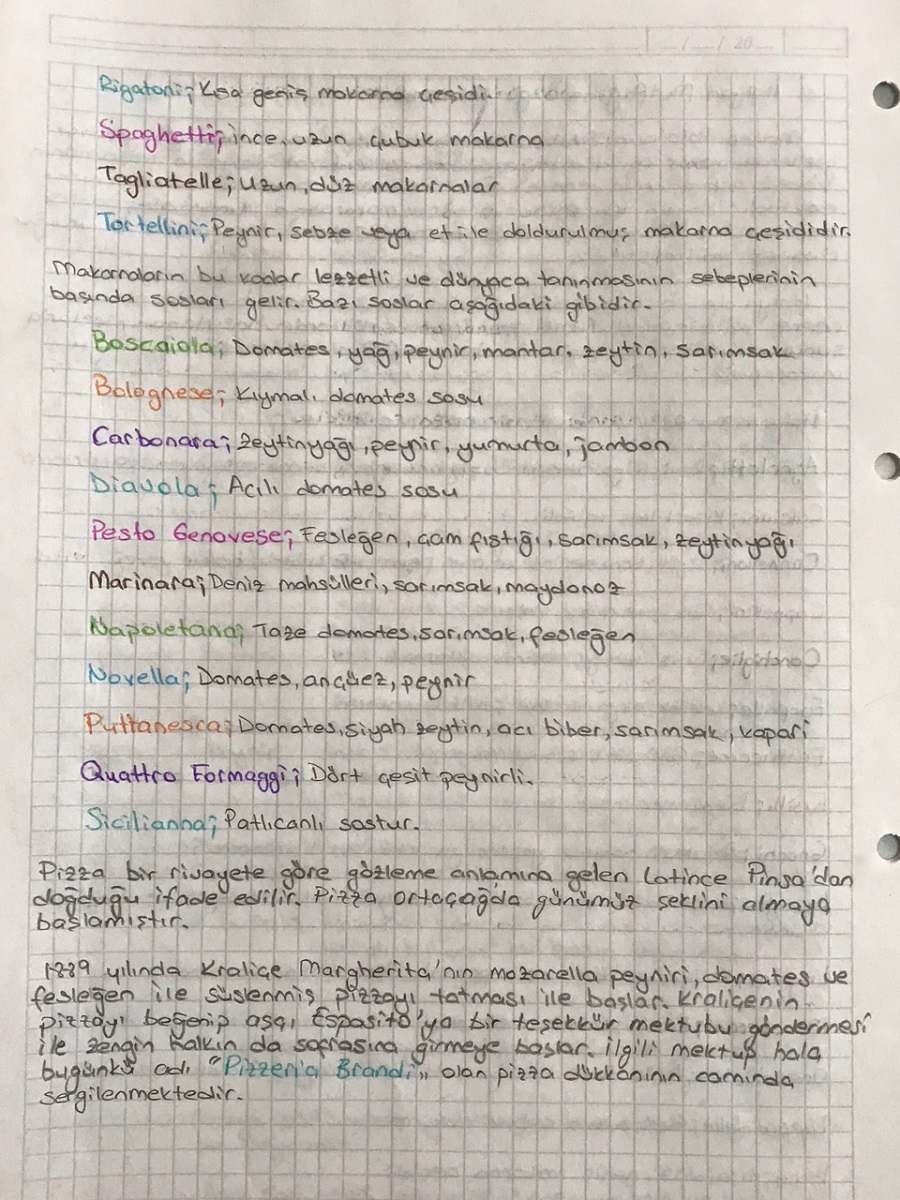 / / 20
Rigatoni; Kısa geniş makarna çeşidi.
Spaghetti; ince, uzun çubuk makarna
Tagliatelle; Uzun, düz makarnalar
Tortellini; Peynir, sebze veya et ile doldurulmuş makarna çeşididir.
Makarnaların bu kadar lezzetli ve dünyaca tanınmasının sebeplerinin
başında sosları gelir. Bazı soslar aşağıdaki gibidir.
Boscaiola; Domates, yağ, peynir, mantar, zeytin, sarımsak
Bolognese; Kıymalı domates sosu
Carbonara; zeytinyağı, peynir, yumurta, jambon
Diavola; Acılı domates sosu
Pesto Genovese; Fesleğen, çam fıstığı, sarımsak, zeytinyağı
Marinara; Deniz mahsülleri, sarımsak, maydonoz
Napoletana; Taze domates, sarımsak, fesleğen
Novella; Domates, ançüez, peynir
Puttanesca; Domates, siyah zeytin, acı biber, sarımsak, kapari
Quattro Formaggi; Dört çeşit peynirli.
Sicilianna; Patlıcanlı sostur.
Pizza bir rivayete göre gözleme anlamına gelen Latince Pinsa'dan
doğduğu ifade edilir. Pizza ortaçağda günümüz şeklini almaya
başlamıştır.
1889 yılında Kraliçe Margherita'nın mozarella peyniri, domates ve
fesleğen ile süslenmiş pizzayı tatması ile başlar. Kraliçenin
pizzayı beğenip aşçı Espasito'ya bir teşekkür mektubu göndermesi
ile zengin halkın da sofrasına girmeye başlar. İlgili mektup hala
bugünkü adı "Pizzeria Brandi" olan pizza dükkanının camında
sergilenmektedir.